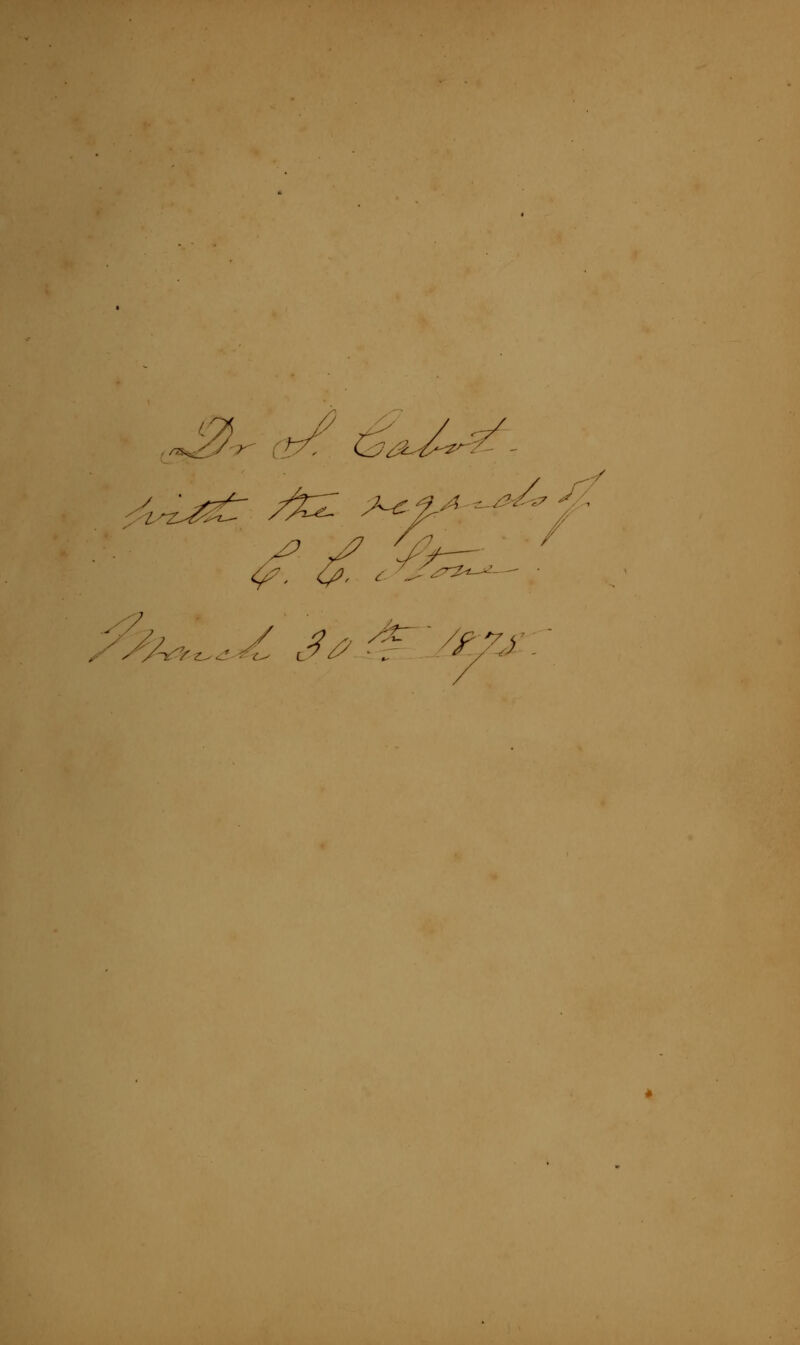 Dr J. Cabot -
with the regards of
March 30th 1878.